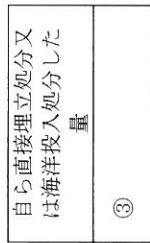 自ら直接埋立処分又
は海洋投入処分した
量
③